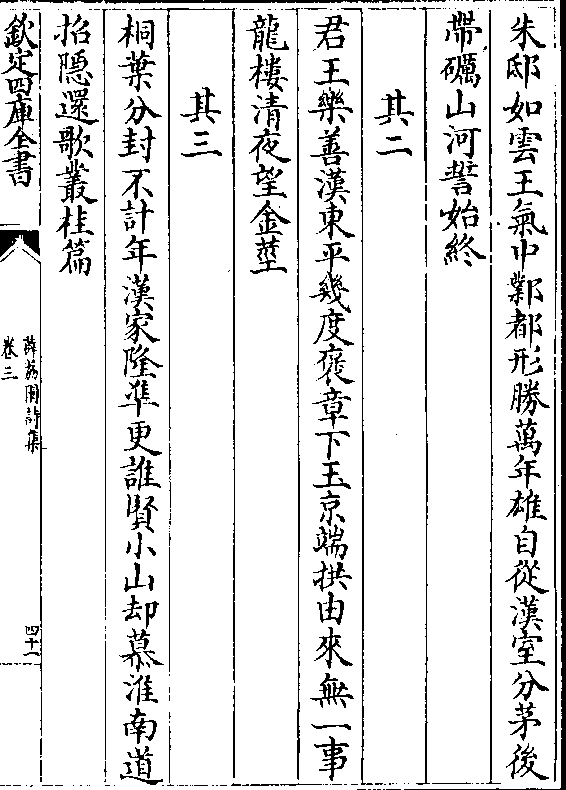 朱邸如雲王氣中鄴都形勝萬年雄自從漢室分茅後
帶礪山河誓始終
其二
君王樂善漢東平幾度褒章下玉京端拱由來無一事
龍樓清夜望金莖
其三
桐葉分封不計年漢家隆凖更誰賢小山却慕淮南道
招隠還歌叢桂篇
欽定四庫全書
薜荔園詩集
卷三
四十一